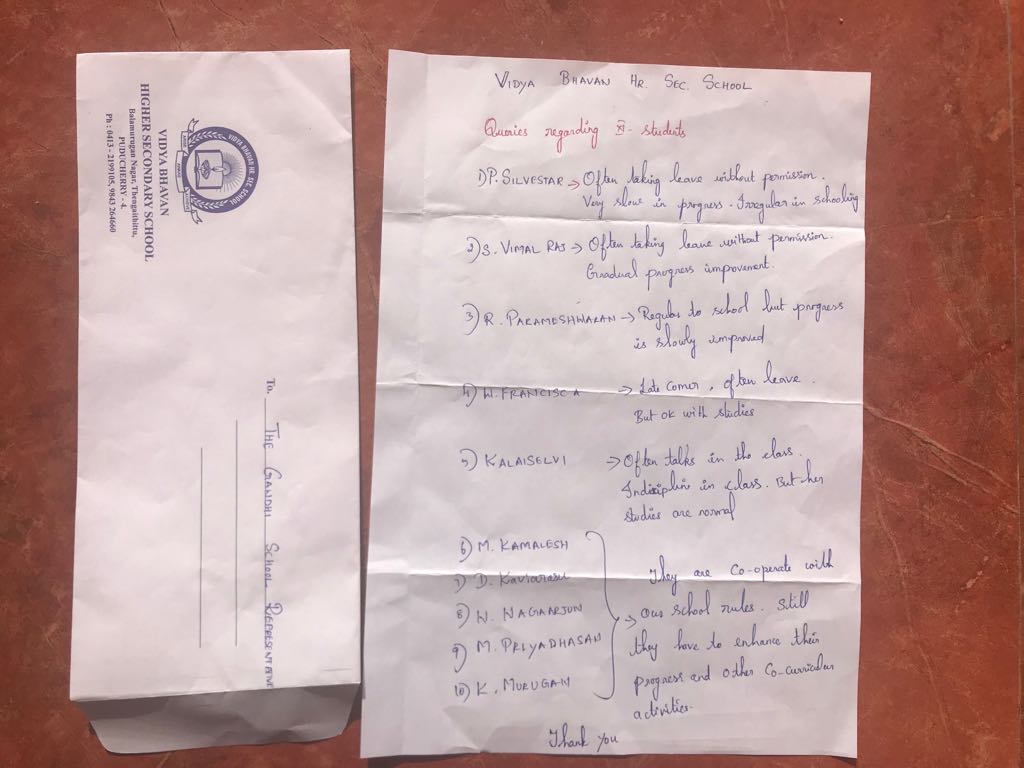 VIDYA BHAVAN HR. SEC. SCHOOL
VIDYA BHAVAN
HIGHER SECONDARY SCHOOL
Balamurugan Nagar, Thengaithittu,
PUDUCHERRY - 4.
Ph : 0413 - 2199105, 9843 264660
To,
THE GANDHI SCHOOL REPRESENTATIVE
VIDYA BHAVAN HR. SEC. SCHOOL
Queries regarding XI - students
1) P. SILVESTAR → Often taking leave without permission.
Very slow in progress. Irregular in schooling
2) S. VIMAL RAJ → Often taking leave without permission.
Gradual progress improvement.
3) R. PARAMESHWARAN → Regular to school but progress
is slowly improved
4) W. FRANCISCA → Late comer, often leave.
But ok with studies
5) KALAISELVI → Often talks in the class.
Indisciplin in class. But her
studies are normal
6) M. KAMALESH
7) D. Kaviarasu
8) N. NAGAARJUN
9) M. PRIYADHASAN
10) K. MURUGAN
They are Co-operate with
→ Our school rules. Still
they have to enhance their
progress and other Co-curricular
activities.
Thank you